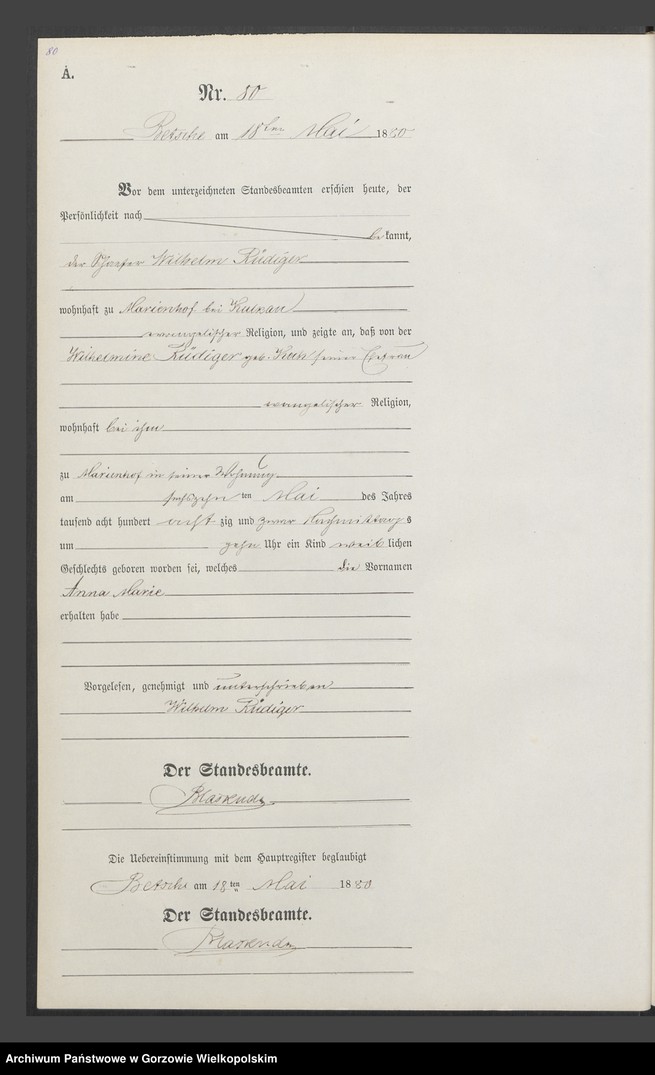 80
A.
Nr. 80
Betsche am 18ten Mai 1880
Vor dem unterzeichneten Standesbeamten erschien heute, der
Persönlichkeit nach
bekannt,
der Schaefer Wilhelm Rüdiger
wohnhaft zu Marienhof bei Kutzkau
evangelischer Religion, und zeigte an, daß von der
Wilhelmine Rüdiger geb. seiner Ehefrau
evangelischer Religion,
wohnhaft bei ihm
zu Marienhof in seiner Wohnung
am sechszehn ten Mai des Jahres
tausend acht hundert acht zig und zwar Nachmittags
um zehn Uhr ein Kind weiblichen
Geschlechts geboren worden sei, welches die Vornamen
Anna Marie
erhalten habe
Vorgelesen, genehmigt und unterschrieben
Wilhelm Rüdiger
Der Standesbeamte.
Die Uebereinstimmung mit dem Hauptregister beglaubigt
Betsche am 18ten Mai 1880
Der Standesbeamte.
Archiwum Państwowe w Gorzowie Wielkopolskim